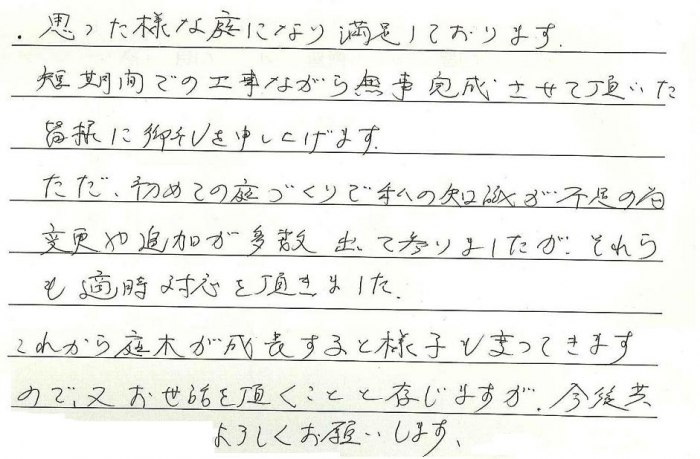 ・思った様な庭になり満足しております.
短期間での工事ながら無事完成させて頂いた
皆様に御礼を申し上げます.
ただ、初めての庭づくりで私の知識が不足の為
変更や追加が多数出て参りましたが、それら
も適時対応を頂きました.
これから庭木が成長すると様子も変ってきます
ので、又お世話を頂くことと存じますが、今後共
よろしくお願いします、